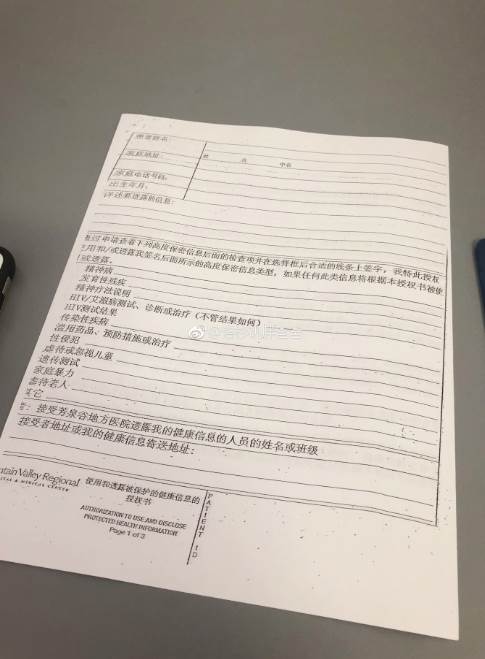 患者姓名:
姓 名 中名
家庭地址:
家庭电话号码:
出生年月:
详述要透露的信息:
通过申请查看下列高度保密信息后面的检查项并在选择框后合适的线条上签字,我特此授权
使用和/或透露我签名后面所示的高度保密信息类型,如果任何此类信息将根据本授权书被使
或透露。
精神病
发育性残疾
精神疗法说明
HIV/艾滋病测试、诊断或治疗(不管结果如何)
HIV测试结果
传染性疾病
滥用药品、预防措施或治疗
性侵犯
虐待或忽视儿童
遗传测试
家庭暴力
虐待老人
其它
接受芳泉谷地方医院透露我的健康信息的人员的姓名或班级
接受者地址或我的健康信息寄送地址:
ntain Valley Regional
ITAL & MEDICAL CENTER
使用和透露被保护的健康信息的
授权书
AUTHORIZATION TO USE AND DISCLOSE
PROTECTED HEALTH INFORMATION
Page 1 of 3
PATIENT ID